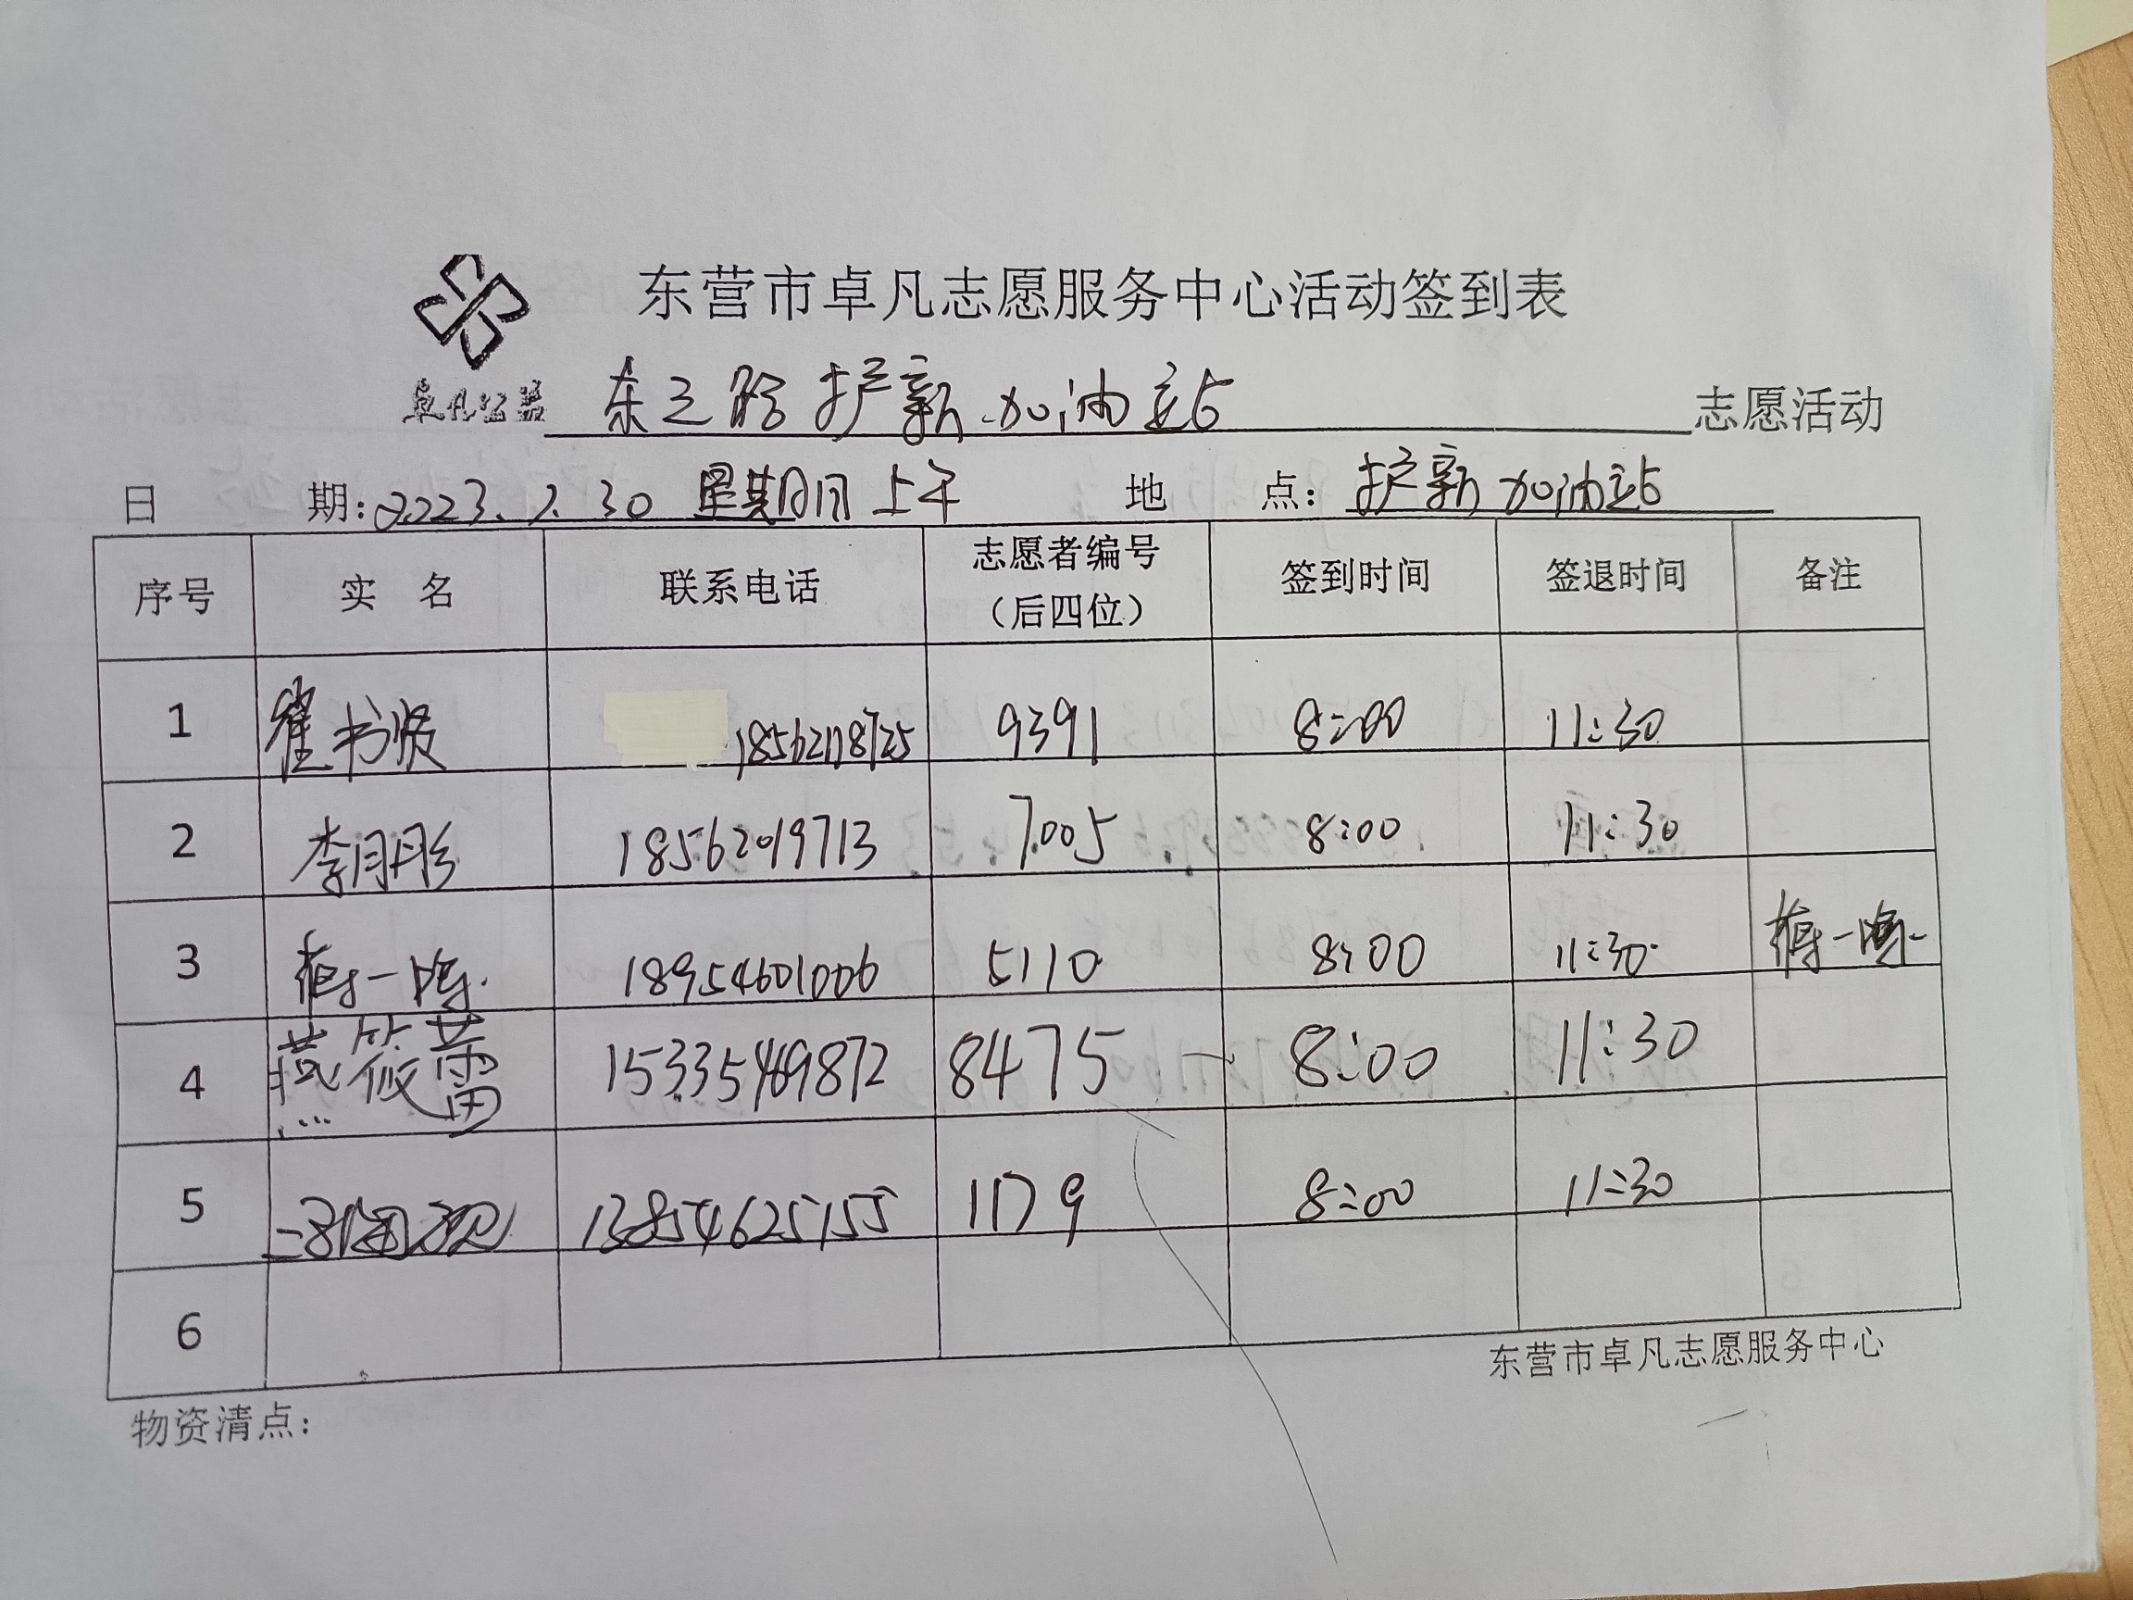 东营市卓凡志愿服务中心活动签到表
卓凡公益 东三路护新加油站 志愿活动
日 期: 2023.7.30 星期日 上午 地 点: 护新加油站
序号 实 名 联系电话 志愿者编号（后四位） 签到时间 签退时间 备注
1 18562118725 9391 8:00 11:30
2 李月彤 18562019713 7005 8:00 11:30
3 18954601006 5110 8:00 11:30
4 燕筱蕾 15335469872 8475 8:00 11:30
5 13854625155 1179 8:00 11:30
6
东营市卓凡志愿服务中心
物资清点: